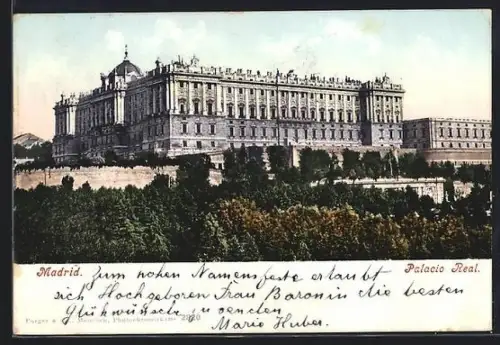 Madrid.
Palacio Real.
Zum hohen Namensfeste erlaubt
sich Hochgeboren Frau Baronin die besten
Glückwünsche zu senden
Marie Huber.
Purger & Co., München, Photochromiekarte